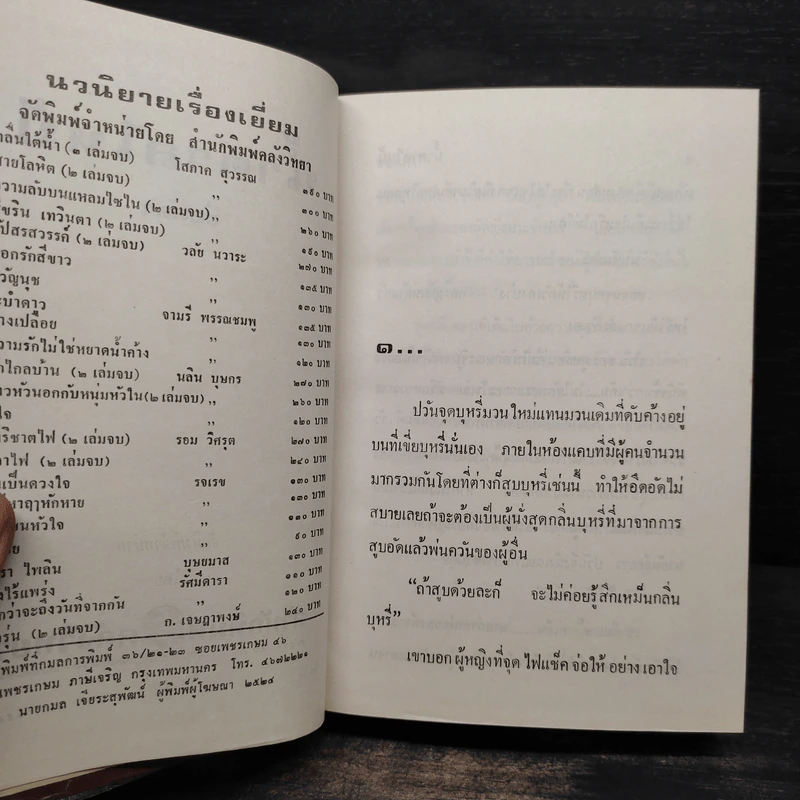 นวนิยายเรื่องเยี่ยม
จัดพิมพ์จำหน่ายโดย สำนักพิมพ์คลังวิทยา
ลื่นใต้น้ำ (๓ เล่มจบ) โสภาค สุวรรณ ๓๙๐ บาท
ายโลหิต (๒ เล่มจบ) ,, ๓๐๐ บาท
วามลับบนแหลมไซไน (๒ เล่มจบ) ,, ๒๖๐ บาท
ซริน เทวินตา (๒ เล่มจบ) ,, ๑๙๐ บาท
ปสรสวรรค์ (๒ เล่มจบ) วลัย นวาระ ๒๗๐ บาท
อกรักสีขาว ,, ๑๓๕ บาท
วัญนุช ,, ๑๓๐ บาท
ะบำดาว จามรี พรรณชมพู ๑๓๕ บาท
างเปลือย ,, ๑๓๐ บาท
วามรักไม่ใช่หยาดน้ำค้าง ,, ๑๒๐ บาท
กไกลบ้าน (๒ เล่มจบ) นลิน บุษกร ๒๗๐ บาท
าวหัวนอกกับหนุ่มหัวใน(๒ เล่มจบ) ,, ๒๖๐ บาท
ใจ ๑๒๐ บาท
ริชาตไฟ (๒ เล่มจบ) รอม วิศรุต ๒๗๐ บาท
าไฟ (๒ เล่มจบ) ,, ๒๔๐ บาท
เป็นดวงใจ รจเรข ๑๓๐ บาท
หาฤๅหักหาย ,, ๑๓๐ บาท
นหัวใจ ,, ๑๓๐ บาท
ย ,, ๙๐ บาท
รา ไพลิน บุษยมาส ๑๓๐ บาท
ไร้แพร่ง รัศมีดารา ๑๑๐ บาท
กว่าจะถึงวันที่จากกัน ,, ๑๒๐ บาท
รุ่น (๒ เล่มจบ) ก. เจษฎาพงษ์ ๒๔๐ บาท
พิมพ์ที่กมลการพิมพ์ ๓๖/๒๑-๒๓ ซอยเพชรเกษม ๔๖
เพชรเกษม ภาษีเจริญ กรุงเทพมหานคร โทร. ๔๖๗๒๒๒๑
นายกมล เจียระสุพัฒน์ ผู้พิมพ์ผู้โฆษณา ๒๕๒๔
๑...
ปวันจุดบุหรี่มวนใหม่แทนมวนเดิมที่ดับค้างอยู่
บนที่เขี่ยบุหรี่นั่นเอง ภายในห้องแคบที่มีผู้คนจำนวน
มากรวมกันโดยที่ต่างก็สูบบุหรี่เช่นนี้ ทำให้อึดอัดไม่
สบายเลยถ้าจะต้องเป็นผู้นั่งสูดกลิ่นบุหรี่ที่มาจากการ
สูบอัดแล้วพ่นควันของผู้อื่น
“ถ้าสูบด้วยละก็ จะไม่ค่อยรู้สึกเหม็นกลิ่น
บุหรี่”
เขาบอก ผู้หญิงที่จุด ไฟแช็ค จ่อให้ อย่าง เอาใจ